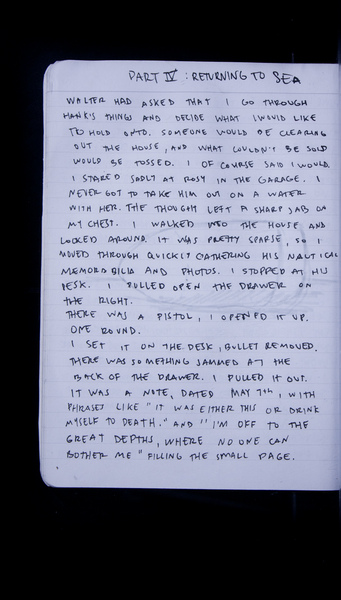 PART IV : RETURNING TO SEA
WALTER HAD ASKED THAT I GO THROUGH
HANK'S THINGS AND DECIDE WHAT I WOULD LIKE
TO HOLD ONTO. SOMEONE WOULD BE CLEARING
OUT THE HOUSE, AND WHAT COULDN'T BE SOLD
WOULD BE TOSSED. I OF COURSE SAID I WOULD.
I STARED SADLY AT ROSY IN THE GARAGE. I
NEVER GOT TO TAKE HIM OUT ON A WATER
WITH HER. THE THOUGHT LEFT A SHARP JAB ON
MY CHEST. I WALKED INTO THE HOUSE AND
LOOKED AROUND. IT WAS PRETTY SPARSE, SO I
MOVED THROUGH QUICKLY GATHERING HIS NAUTICAL
MEMORABILIA AND PHOTOS. I STOPPED AT HIS
DESK. I PULLED OPEN THE DRAWER ON
THE RIGHT.
THERE WAS A PISTOL, I OPENED IT UP.
ONE ROUND.
I SET IT ON THE DESK, BULLET REMOVED.
THERE WAS SOMETHING JAMMED AT THE
BACK OF THE DRAWER. I PULLED IT OUT.
IT WAS A NOTE, DATED MAY 7TH, WITH
PHRASES LIKE "IT WAS EITHER THIS OR DRINK
MYSELF TO DEATH." AND "I'M OFF TO THE
GREAT DEPTHS, WHERE NO ONE CAN
BOTHER ME" FILLING THE SMALL PAGE.